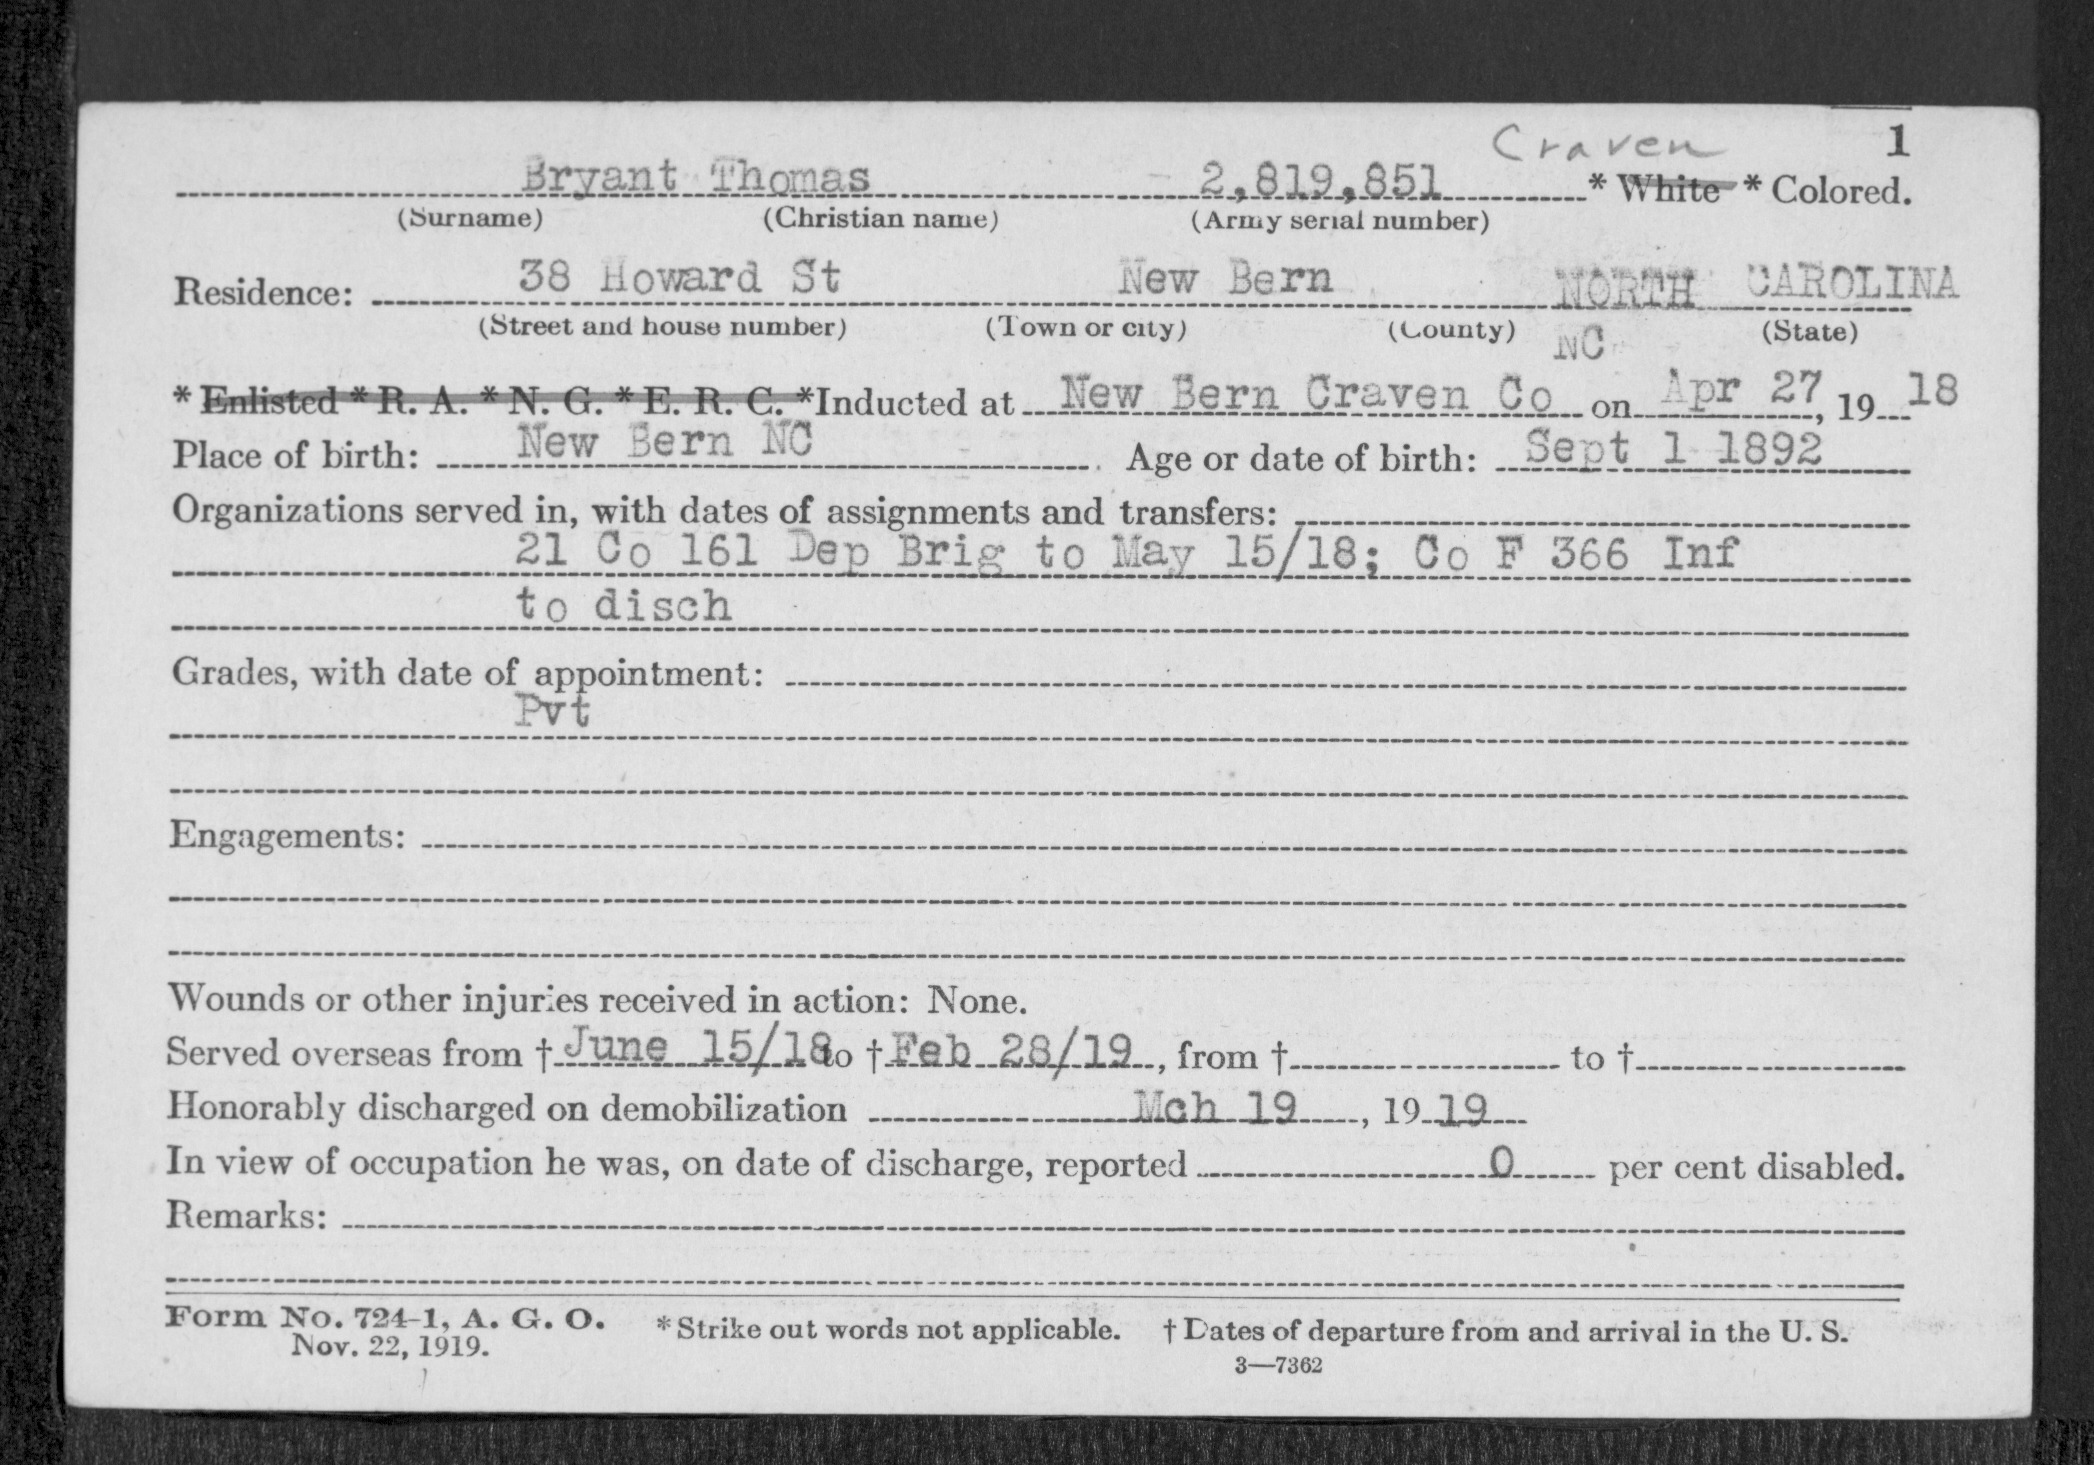 Craven 1
Bryant Thomas 2,819,851 * White * Colored.
(Surname) (Christian name) (Army serial number)
Residence: 38 Howard St New Bern NORTH CAROLINA
(Street and house number) (Town or city) (County) (State)
NC
* Enlisted * R. A. * N. G. * E. R. C. * Inducted at New Bern Craven Co on Apr 27, 19 18
Place of birth: New Bern NC Age or date of birth: Sept 1 1892
Organizations served in, with dates of assignments and transfers:
21 Co 161 Dep Brig to May 15/18; Co F 366 Inf
to disch
Grades, with date of appointment:
Pvt
Engagements:
Wounds or other injuries received in action: None.
Served overseas from † June 15/18 to † Feb 28/19, from † to †
Honorably discharged on demobilization Mch 19, 19 19
In view of occupation he was, on date of discharge, reported 0 per cent disabled.
Remarks:
Form No. 724-1, A. G. O. * Strike out words not applicable. † Dates of departure from and arrival in the U. S.
Nov. 22, 1919.
3—7362